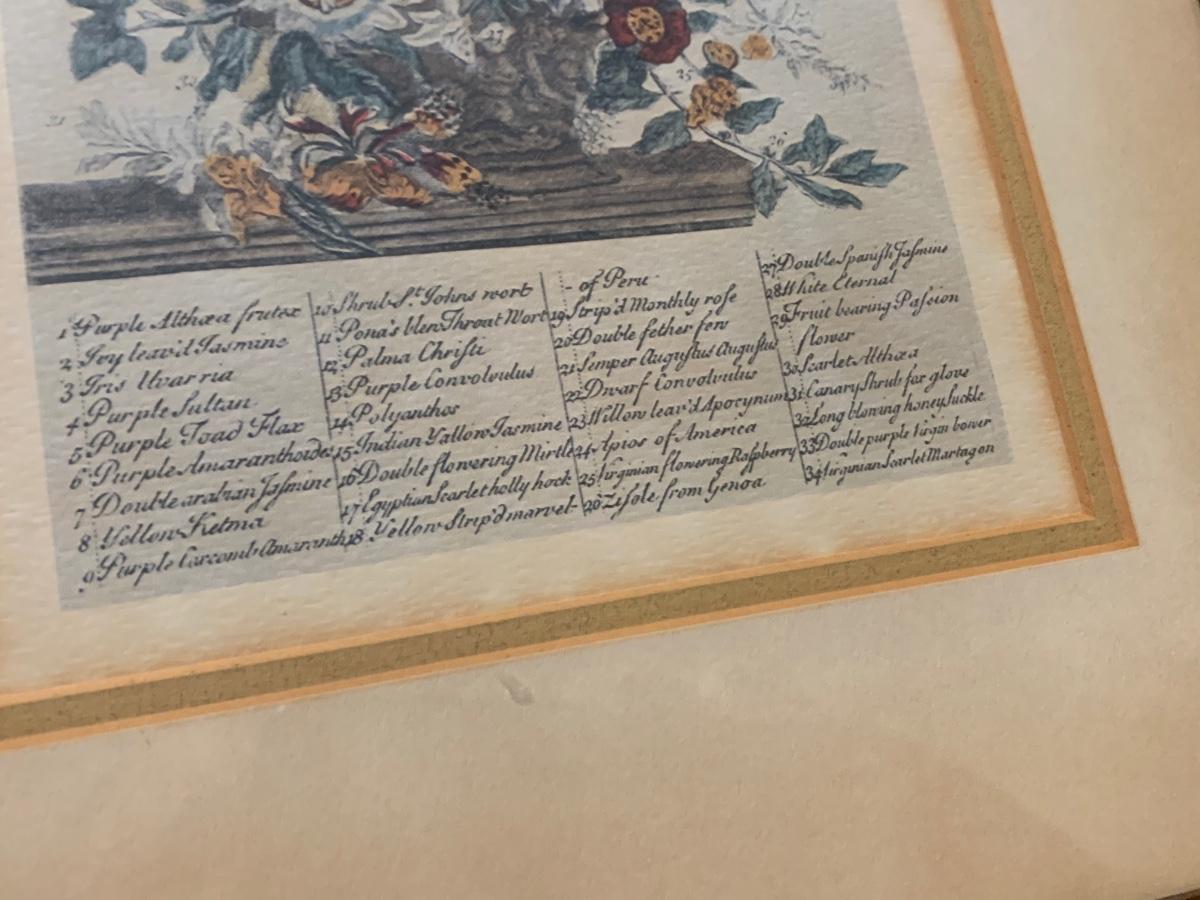 1 Purple Althæa frutex
2 Ivy leav'd Jasmine
3 Iris Uvaria
4 Purple Sultan
5 Purple Toad Flax
6 Purple Amaranthoides
7 Double arabian Jasmine
8 Yellow Ketmia
9 Purple Coxcomb Amaranth
10 Shrub St. Johns wort
11 Pona's blew Throat Wort
12 Palma Christi
13 Purple Convolvulus
14 Polyanthos
15 Indian Yallow Jasmine
16 Double flowering Mirtle
17 Egyptian Scarlet holly hock
18 Yellow Strip'd marvel-
- of Peru
19 Strip'd Monthly rose
20 Double fether few
21 Semper Augustus Augustus
22 Dwarf Convolvulus
23 Willow leav'd Apocynum
24 Apios of America
25 Virginian flowering Raspberry
26 Zisole from Genoa
27 Double Spanish Jasmine
28 White Eternal
29 Fruit bearing Passion
flower
30 Scarlet Althæa
31 Canary Shrub fox glove
32 Long blowing honeysuckle
33 Double purple Virgin bower
34 Virginian Scarlet Martagon